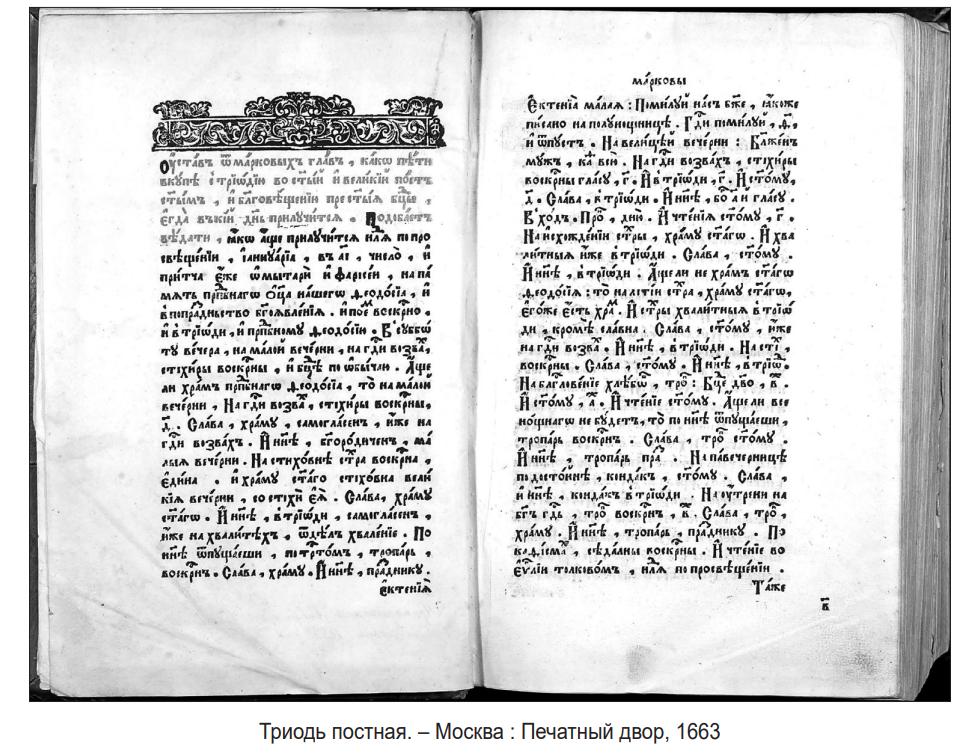 Оуста́въ ѿ ма́рковыхъ гла́въ , ка́кѡ пѣ́ти
вкꙋ́пѣ с̾ трїѡ́дїю во ст҃ы́й и҆ вели́кїй по́стъ
ст҃ы́мъ , и҆ бл҃говѣ́щенїи прест҃ы́ѧ бц҃ы ,
є҆гда̀ въ кі́й дн҃ь прилꙋчи́тсѧ . Подоба́етъ
вѣ́дати , ꙗ҆́кѡ а҆́ще прилꙋчи́тсѧ нлⷧ҇ѧ по про
свѣще́нїи , і҆аннꙋа́рїа , въ а҃і , число̀ , и҆
при́тча є҆́же ѡ҆ мытарѝ и҆ фарисе́и , на па
мѧть прпⷣбнагѡ ѻ҆ц҃а̀ на́шегѡ ѳеодо́сїа , и҆
в̾попра́дньство бг҃оѧвле́нїѧ . и҆ пое́мъ воскр҇но ,
и҆ в̾ трїѡ́ди , и҆ прпⷣбномꙋ ѳеодо́сїю . В̾ сꙋббѡ
тꙋ ве́чера , на ма́лой вече́рни , на гдⷭ҇и возва́хъ ,
стїхи́ры воскр҇ны , и҆ бц҃ѣ по ѡ҆бы́чаю . А҆́ще
ли хра́мъ прпⷣбнагѡ ѳеодо́сїа , то̀ на ма́лой
вече́рни , На гдⷭ҇и возва́хъ , стїхи́ры воскр҇ны ,
д҃ . Сла́ва , хра́мꙋ , самогла́сенъ , и҆́же на
гдⷭ҇и возва́хъ . И҆ нн҃ѣ , бг҃оро́диченъ , ма́
лыѧ вече́рни . На стїхо́внѣ стⷯра воскр҇на ,
є҆ди́на . и҆ хра́мꙋ ст҃а́го стїхо́вна вели́
кїѧ вече́рни , со стїхѝ є҆ѧ̀ . Сла́ва , хра́мꙋ
ст҃а́гѡ . И҆ нн҃ѣ , в̾ трїѡ́ди , самогла́сенъ ,
и҆́же на хвали́тѣхъ , ѿдѣ́лъ хвале́нїе . По
нн҃ѣ ѿпꙋща́еши , по трⷭ҇то́мъ , тропа́рь ,
воскрⷭ҇нъ . Сла́ва , хра́мꙋ . И҆ нн҃ѣ , пра́зⷣникꙋ .
є҆ктенїѧ̀
ма́рковы
Є҆ктенїѧ̀ ма́лаѧ : Поми́лꙋй на́съ бж҃е , ꙗ҆́коже
пи́сано на полꙋ́нощницѣ . Гдⷭ҇и поми́лꙋй , г҃ ,
и҆ ѿпꙋ́стъ . На вели́цѣй вече́рни : Бл҃же́нъ
мꙋ́жъ , каѳ ве́сь . На гдⷭ҇и возва́хъ , стїхи́ры
воскр҇ны гла́сꙋ , г҃ . И҆ в̾ трїѡ́ди , г҃ . И҆ ст҃о́мꙋ ,
д҃ . Сла́ва , в̾ трїѡ́ди . И҆ нн҃ѣ , бо҇ а҃ й гла́сꙋ .
Вхо́дъ . Про҇ , дню̀ . И҆ чте́нїѧ ст҃о́мꙋ , г҃ .
На и҆схожде́нїи стⷯры , хра́мꙋ ст҃а́гѡ . И҆ хва
ли́тныѧ и҆́же в̾ трїѡ́ди . Сла́ва , ст҃о́мꙋ .
И҆ нн҃ѣ , в̾ трїѡ́ди . А҆́ще ли не хра́мъ ст҃а́гѡ
ѳеодо́сїа : то̀ на лїтїѝ стⷯра , хра́мꙋ ст҃а́гѡ ,
є҆гѡ́же є҆́сть хра́мъ . И҆ стⷯры хвали́тныѧ в̾ трїѡ́
ди , кромѣ̀ сла́вна . Сла́ва , ст҃о́мꙋ , и҆́же
на гдⷭ҇и возва́хъ . И҆ нн҃ѣ , в̾ трїѡ́ди . На стⷯ ,
воскр҇ны . Сла́ва , ст҃о́мꙋ . И҆ нн҃ѣ , в̾ трїѡ́ди .
На бл҃гове́нїе хлѣ́бѡ , тро҇ : Бц҃е дв҃о , в҃ .
И҆ ст҃о́мꙋ , а҃ . И҆ чте́нїе ст҃о́мꙋ . А҆́ще ли все
но́щнагѡ не бꙋ́детъ , то̀ по нн҃ѣ ѿпꙋща́еши ,
тропа́рь воскрⷭ҇нъ . Сла́ва , тро҇ ст҃о́мꙋ .
И҆ нн҃ѣ , тропа́рь пра҇ . На павече́рницѣ
по досто́йнѣ , конда́къ , ст҃о́мꙋ . Сла́ва ,
и҆ нн҃ѣ , конда́къ в̾ трїѡ́ди . На оу҆́трени на
бг҃ъ гдⷭ҇ь , тро҇ воскр҇нъ , в҃ . Сла́ва , тро҇ ,
хра́мꙋ . И҆ нн҃ѣ , тропа́рь , пра́зⷣникꙋ . По
каѳі́смахъ , сѣда́лны воскр҇ны . И҆ чте́нїе во
є҆ѵⷢ҇лїи толково́мъ , нлⷧ҇ѧ по просвѣще́нїи .
Та́же
в҃
Триодь постная. – Москва : Печатный двор, 1663